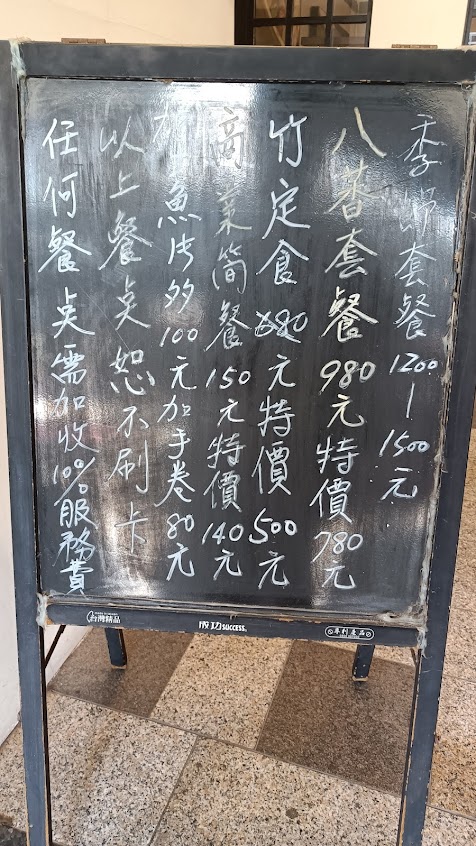 季節套餐1200-1500元
八番套餐980元特價780元
竹定食680元特價500元
商業簡餐150元特價140元
魚片多100元加手卷80元
以上餐点恕不刷卡
任何餐点需加收10%服務費
台灣精品
成功SUCCESS
專利產品